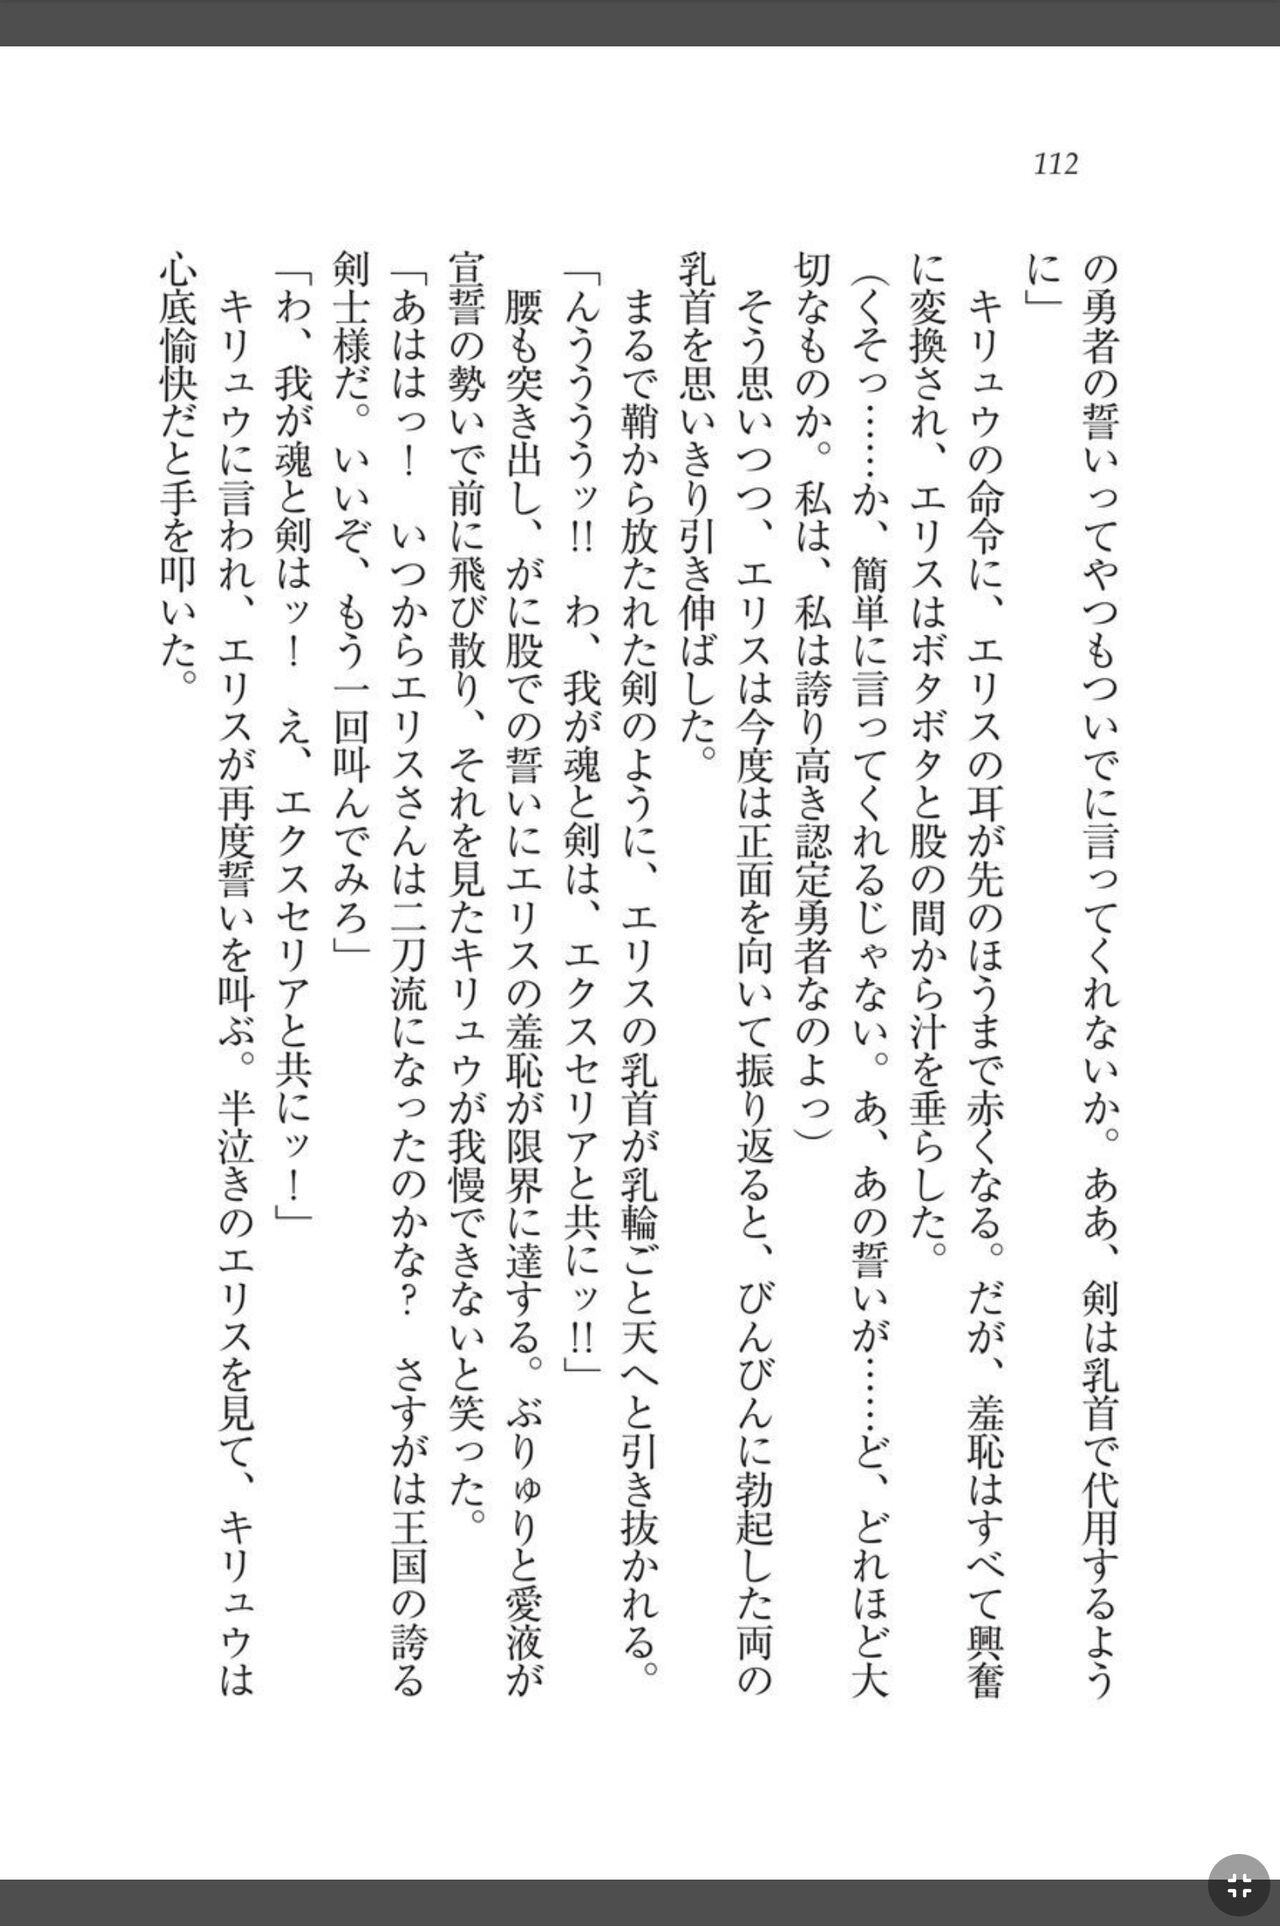 112
の勇者の誓いってやつもついでに言ってくれないか。ああ、剣は乳首で代用するよう
に」
　キリュウの命令に、エリスの耳が先のほうまで赤くなる。だが、羞恥はすべて興奮
に変換され、エリスはボタボタと股の間から汁を垂らした。
（くそっ……か、簡単に言ってくれるじゃない。あ、あの誓いが……ど、どれほど大
切なものか。私は、私は誇り高き認定勇者なのよっ）
　そう思いつつ、エリスは今度は正面を向いて振り返ると、びんびんに勃起した両の
乳首を思いきり引き伸ばした。
　まるで鞘から放たれた剣のように、エリスの乳首が乳輪ごと天へと引き抜かれる。
「んうううッ!!　わ、我が魂と剣は、エクスセリアと共にッ!!」
　腰も突き出し、がに股での誓いにエリスの羞恥が限界に達する。ぶりゅりと愛液が
宣誓の勢いで前に飛び散り、それを見たキリュウが我慢できないと笑った。
「あははっ！　いつからエリスさんは二刀流になったのかな？　さすがは王国の誇る
剣士様だ。いいぞ、もう一回叫んでみろ」
「わ、我が魂と剣はッ！　え、エクスセリアと共にッ！」
　キリュウに言われ、エリスが再度誓いを叫ぶ。半泣きのエリスを見て、キリュウは
心底愉快だと手を叩いた。